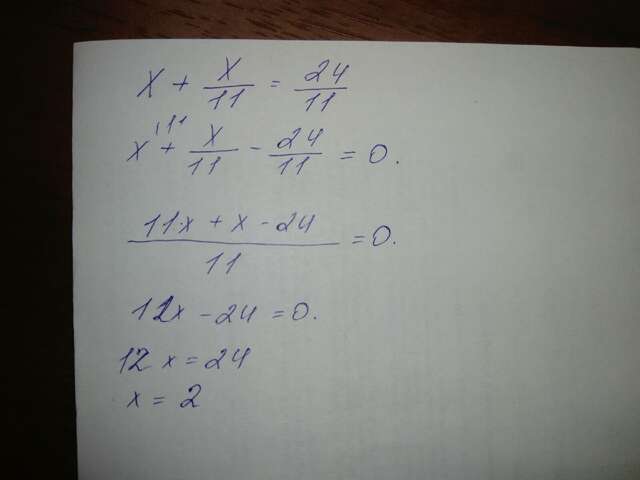 x + x/11 = 24/11
x^11 + x/11 - 24/11 = 0.
11·x + x - 24 / 11 = 0.
12x - 24 = 0.
12x = 24
x = 2